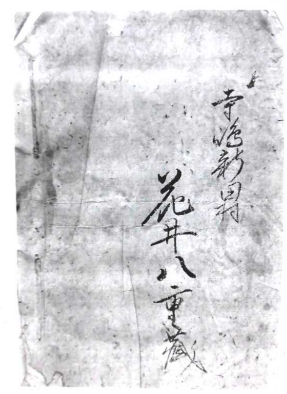 寺嶋新田
花井八重蔵